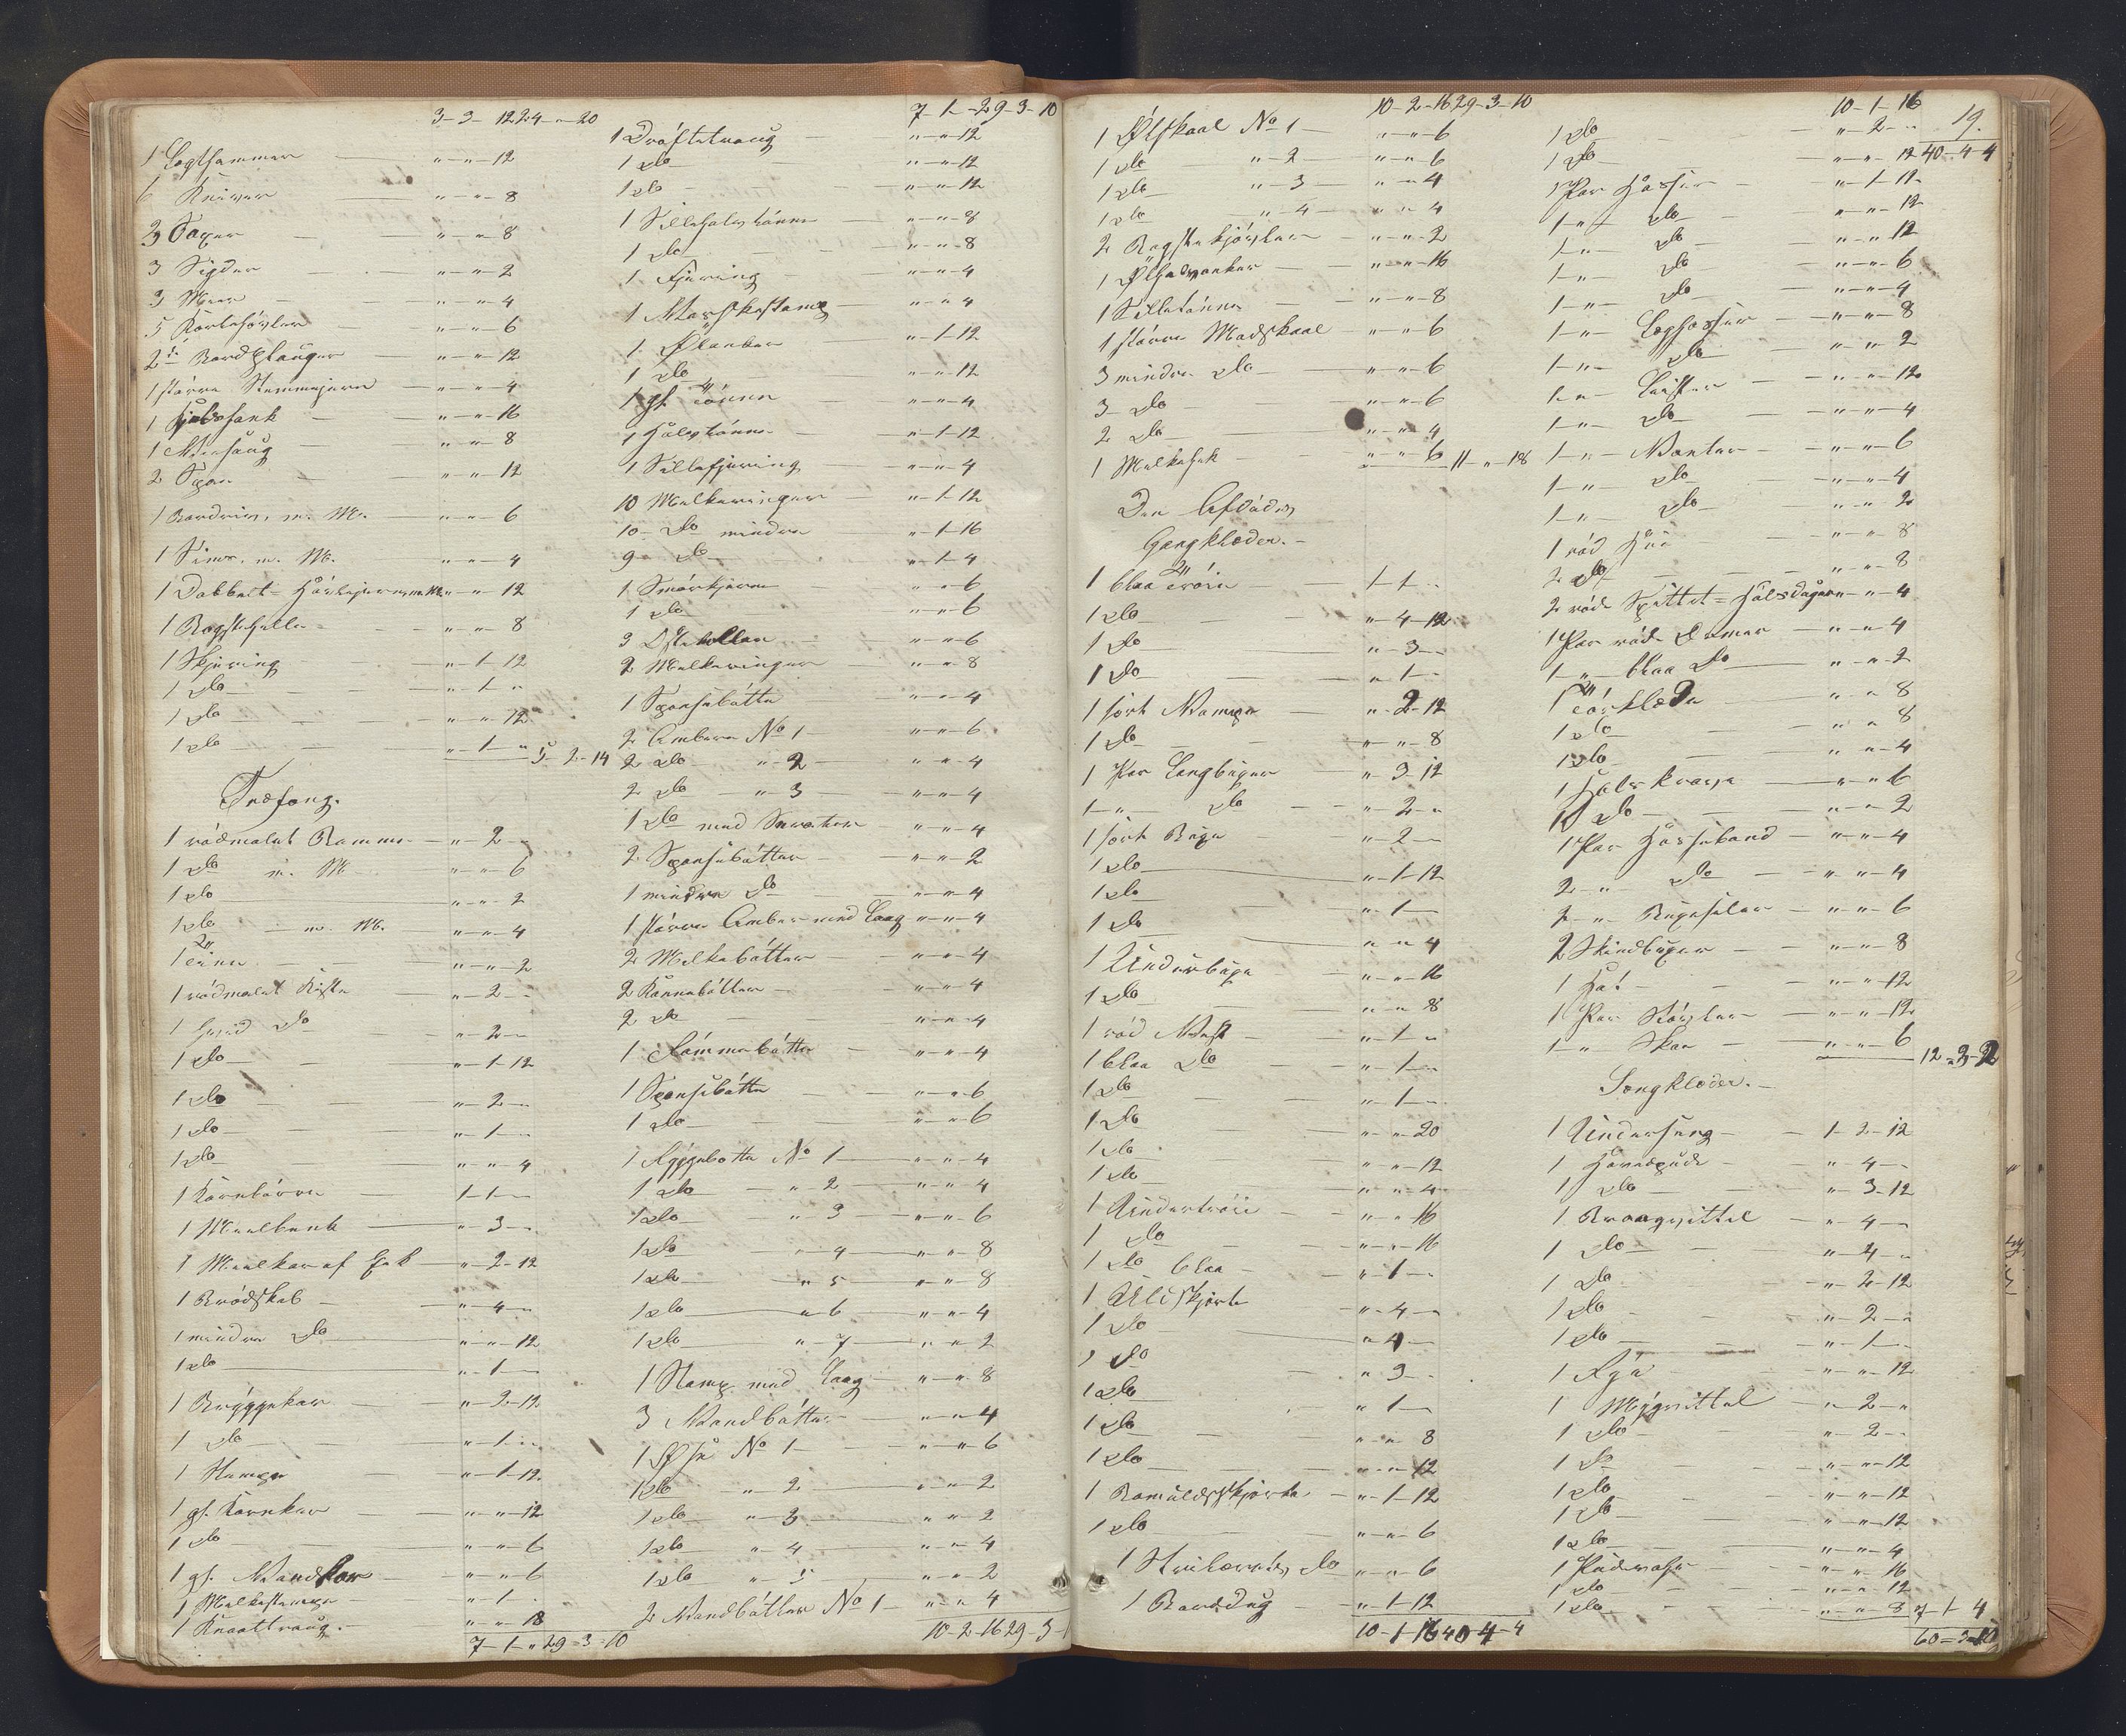 3-3-12 24-"-20
1 Lagthammer "-"-12
6 Kniver "-"-8
3 Saxer "-"-8
3 Sigder "-"-2
3 "-"-4
5 "-"-6
2 "-"-12
1 større Stemmejern "-"-4
1 "-"-16
1 "-"-8
2 "-"-12
1 m. M. "-"-6
1 m. M. "-"-4
1 Dobbelt= "-"-12
1 Bagstehelle "-"-8
1 Skjæring "-1-12
1 Do "-1-"
1 Do "-"-12
1 Do "-1-" 5-2-14
Træfang.
1 rødmalet "-2-"
1 Do m. M. "-"-6
1 Do "-"-2
1 Do m. M. "-"-4
1 Tiine "-"-2
1 rødmalet Kiste "-2-"
1 hvid Do "-2-"
1 Do "-1-12
1 Do "-2-"
1 Do "-1-"
1 Do "-"-4
1 Kornbørre 1-1-"
1 Meelbenk "-3-"
1 Meelkar af Eek "-2-12
1 Brødskab "-4-"
1 mindre Do "-"-12
1 Do "-1-"
1 Bryggekar "-2-12
1 Do "-1-"
1 Stampe "-1-12
1 gl. Kornkar "-"-12
1 Do "-"-6
1 gl. Vandkar "-"-6
1 Melkestampe "-1-"
1 Knaattraug. "-"-18
7-1-" 29-3-10
7-1-" 29-3-10
1 Drøftetraug "-"-12
1 Do "-"-12
1 Do "-"-12
1 Sildhalvtønne "-"-8
1 Do "-"-8
1 Fjering "-"-4
1 "-"-4
1 Ølanker "-1-12
1 Do "-"-12
1 gl. Tønne "-"-4
1 Halvtønne "-1-12
1 Sildefjering "-"-4
10 Melkeringer "-1-12
10 Do mindre "-1-16
9 Do "-1-4
1 Smørkjerne "-"-6
1 Do "-"-6
3 Ostekoller "-"-6
2 Melkeringer "-"-8
1 Spansebøtte "-"-4
2 Ambere No 1 "-"-6
2 Do "-2 "-"-4
2 Do "-3 "-"-4
1 Do med "-"-4
2 Spansebøtter "-"-2
1 mindre Do "-"-4
1 større Amber med Laag "-"-4
2 Melkebøtter "-"-4
2 Kannebøtter "-"-4
2 Do "-"-4
1 Rømmebøtte "-"-4
1 Spansebøtte "-"-6
1 Do "-"-6
1 Ryggebøtte No 1 "-"-4
1 Do "-2 "-"-4
1 Do "-3 "-"-6
1 Do "-4 "-"-8
1 Do "-5 "-"-8
1 Do "-6 "-"-4
1 Do "-7 "-"-2
1 Stamp med Laag "-"-8
3 Vandbøtter "-"-4
1 Øse No 1 "-"-6
1 Do "-2 "-"-2
1 Do "-3 "-"-2
1 Do "-4 "-"-4
1 Do "-5 "-"-2
2 Vandbøtter No 1 "-"-4
10-2-16 29-3-1
10-2-16 29-3-10
1 Ølskaal No 1 "-"-6
1 Do "-2 "-"-6
1 Do "-3 "-"-4
1 Do "-4 "-"-4
2 "-"-2
1 Ølhalvanker "-"-16
1 Sildetønne "-"-8
1 større Madskaal "-"-6
3 mindre Do "-"-6
3 Do "-"-6
2 Do "-"-4
1 "-"-6 11-"-18
Den Afdødes
Gangklæder.
1 blaa Trøie 1-1-"
1 Do "-4-12
1 Do "-3-"
1 Do "-1-"
1 sort Vampe "-2-12
1 Do "-"-8
1 Par Langbuxer "-3-12
1 " Do "-2-"
1 sort Buxe "-2-"
1 Do "-1-12
1 Do "-1-"
1 Do "-"-4
1 Underbuxe "-"-16
1 Do "-"-8
1 rød Vest "-1-"
1 blaa Do "-1-"
1 Do "-1-"
1 Do "-"-20
1 Do "-"-12
1 Do "-"-4
1 Undertrøie "-"-16
1 Do "-"-16
1 Do blaa "-1-"
1 Uldskjorte "-4-"
1 Do "-4-"
1 Do "-3-"
1 Do "-1-"
1 Do "-"-8
1 Do "-"-12
1 Bomuldsskjorte "-1-12
1 Do "-"-6
1 Do "-"-6
1 "-1-12
10-1-16 40-4-4
10-1-16 19.
1 Do "-2-"
1 Do "-"-12 40-4-4
1 Par Hoser "-1-12
1-" Do "-"-12
1-" Do "-"-12
1-" Do "-"-6
1-" Do "-"-4
1-" "-"-8
1-" Do "-"-2
1-" Lester "-"-12
1-" Do "-"-4
1-" Vanter "-"-6
1-" Do "-"-4
1-" Do "-"-2
1 rød Hue "-"-8
2 Do "-"-8
2 røde "-"-4
1 Par røde "-"-4
1-" blaa Do "-"-2
1 Tørklæde "-"-8
1 Do "-"-8
1 Do "-"-4
1 Halskrave "-"-6
1 Do "-"-2
1 Par Hoseband "-"-4
2-" Do "-"-4
2-" Buxeseler "-"-6
2 Skindbuxer "-"-8
1 Hat "-"-12
1 Par Støvler "-"-12
1-" Skoe "-"-6 12-3-2
Sengklæder.
1 Underseng 1-2-12
1 Hovedpude "-4-"
1 Do "-3-12
1 Braagvittel "-4-"
1 Do "-4-"
1 Do "-2-12
1 Do "-2-"
1 Do "-1-"
1 Rye "-"-12
1 "-2-"
1 Do "-2-"
1 Do "-"-12
1 Do "-"-12
1 Do "-"-12
1 Do "-"-4
1 Pudevahr "-"-16
1 Do "-"-12
1 Do "-"-8 7-1-4
60-3-10